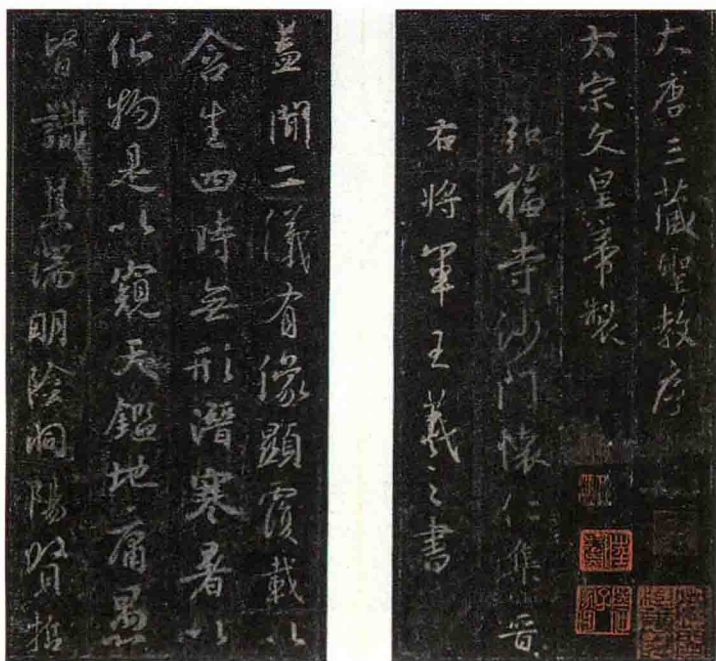 大唐三藏聖教序
太宗文皇帝製
弘福寺沙門懷仁集晉
右將軍王羲之書
蓋聞二儀有像顯覆載以
含生四時無形潛寒暑以
化物是以窺天鑑地庸愚
皆識其端明陰洞陽賢哲